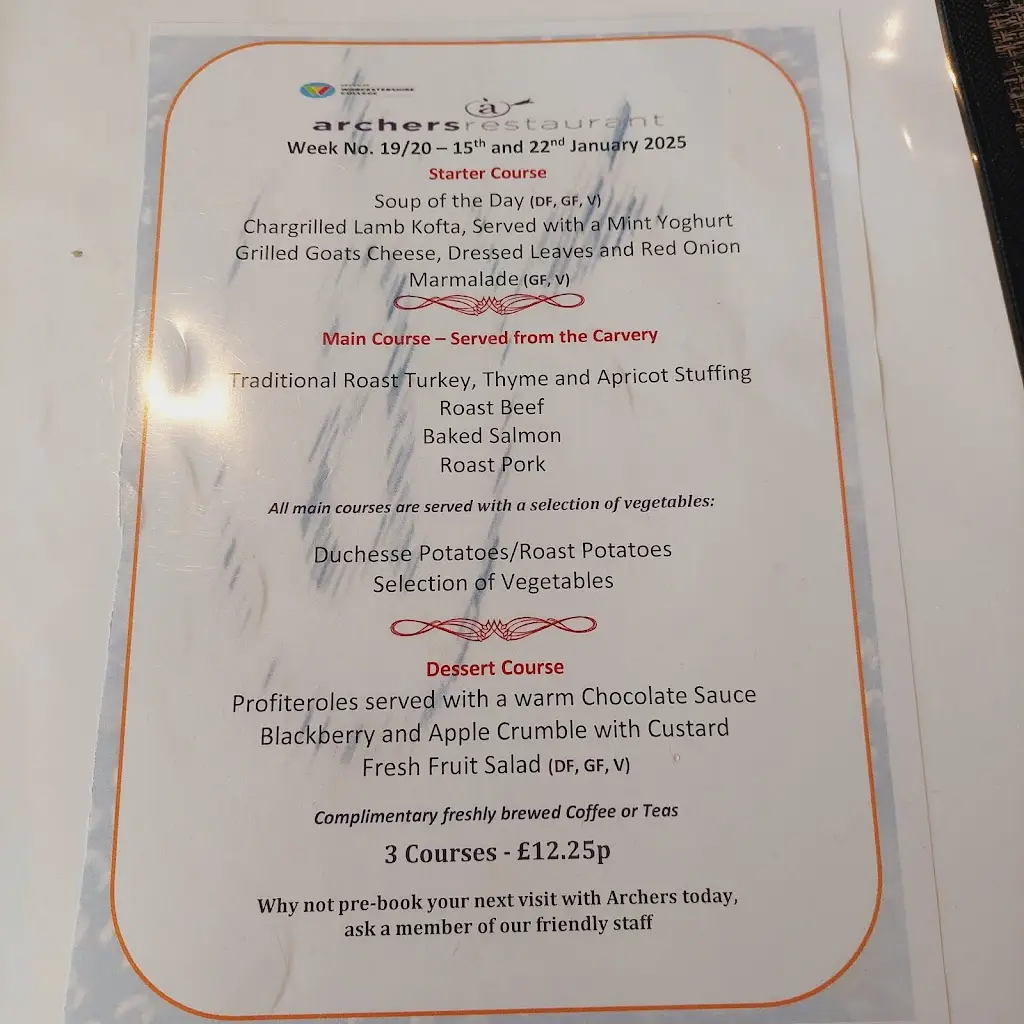 WORCESTERSHIRE
COLLEGE
à
archersrestaurant
Week No. 19/20 – 15th and 22nd January 2025
Starter Course
Soup of the Day (DF, GF, V)
Chargrilled Lamb Kofta, Served with a Mint Yoghurt
Grilled Goats Cheese, Dressed Leaves and Red Onion
Marmalade (GF, V)
Main Course – Served from the Carvery
Traditional Roast Turkey, Thyme and Apricot Stuffing
Roast Beef
Baked Salmon
Roast Pork
All main courses are served with a selection of vegetables:
Duchesse Potatoes/Roast Potatoes
Selection of Vegetables
Dessert Course
Profiteroles served with a warm Chocolate Sauce
Blackberry and Apple Crumble with Custard
Fresh Fruit Salad (DF, GF, V)
Complimentary freshly brewed Coffee or Teas
3 Courses - £12.25p
Why not pre-book your next visit with Archers today,
ask a member of our friendly staff